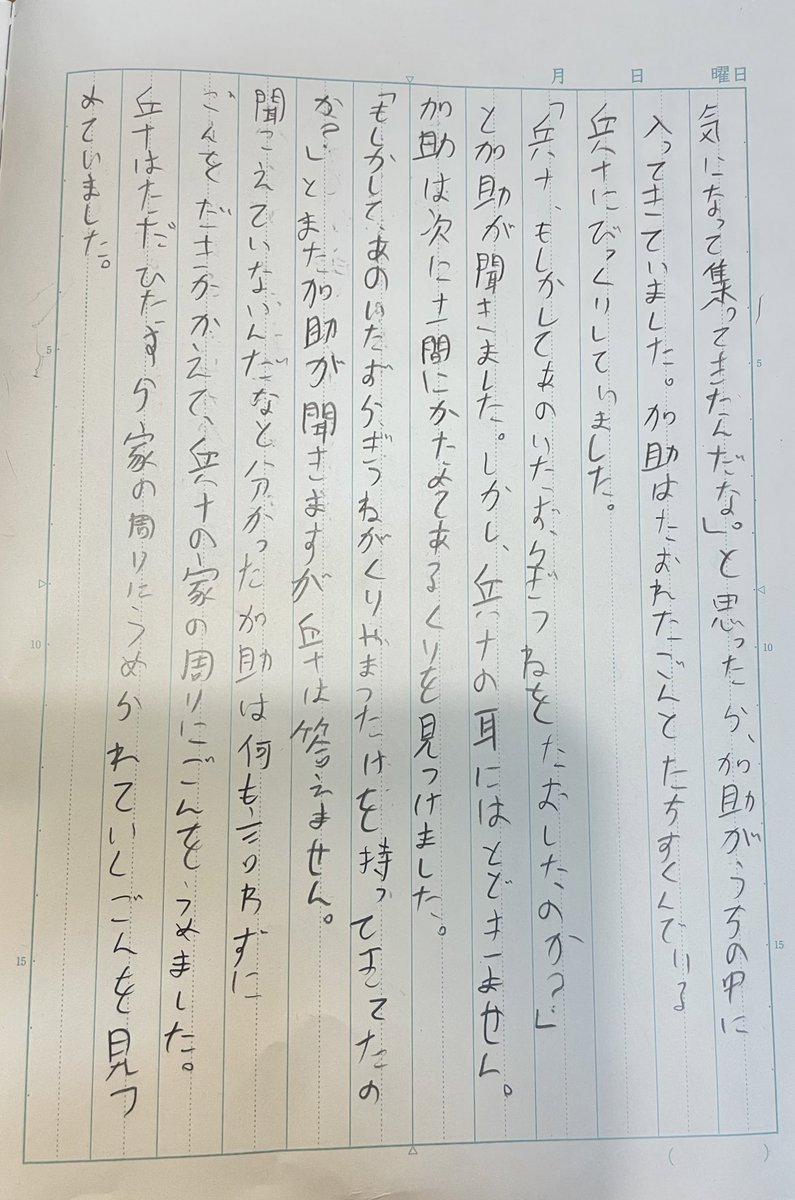 月 日 曜日
気になって集ってきたんだな。」と思ったら、加助がうちの中に
入ってきていました。加助はたおれたごんとたちすくんでいる
兵十にびっくりしていました。
「兵十、もしかしてあのいたずらぎつねをたおしたのか?」
と加助が聞きました。しかし、兵十の耳にはとどきません。
加助は次に土間にかためてあるくりを見つけました。
「もしかして、あのいたずらぎつねがくりやまつたけを持ってきてたの
か?」とまた加助が聞きますが兵十は答えません。
聞こえていないんだなと分かった加助は何も言わずに
ごんをだきかかえて、兵十の家の周りにごんをうめました。
兵十はただひたすら家の周りにうめられていくごんを見つ
めていました。
5
10
15
5
10
15
( )